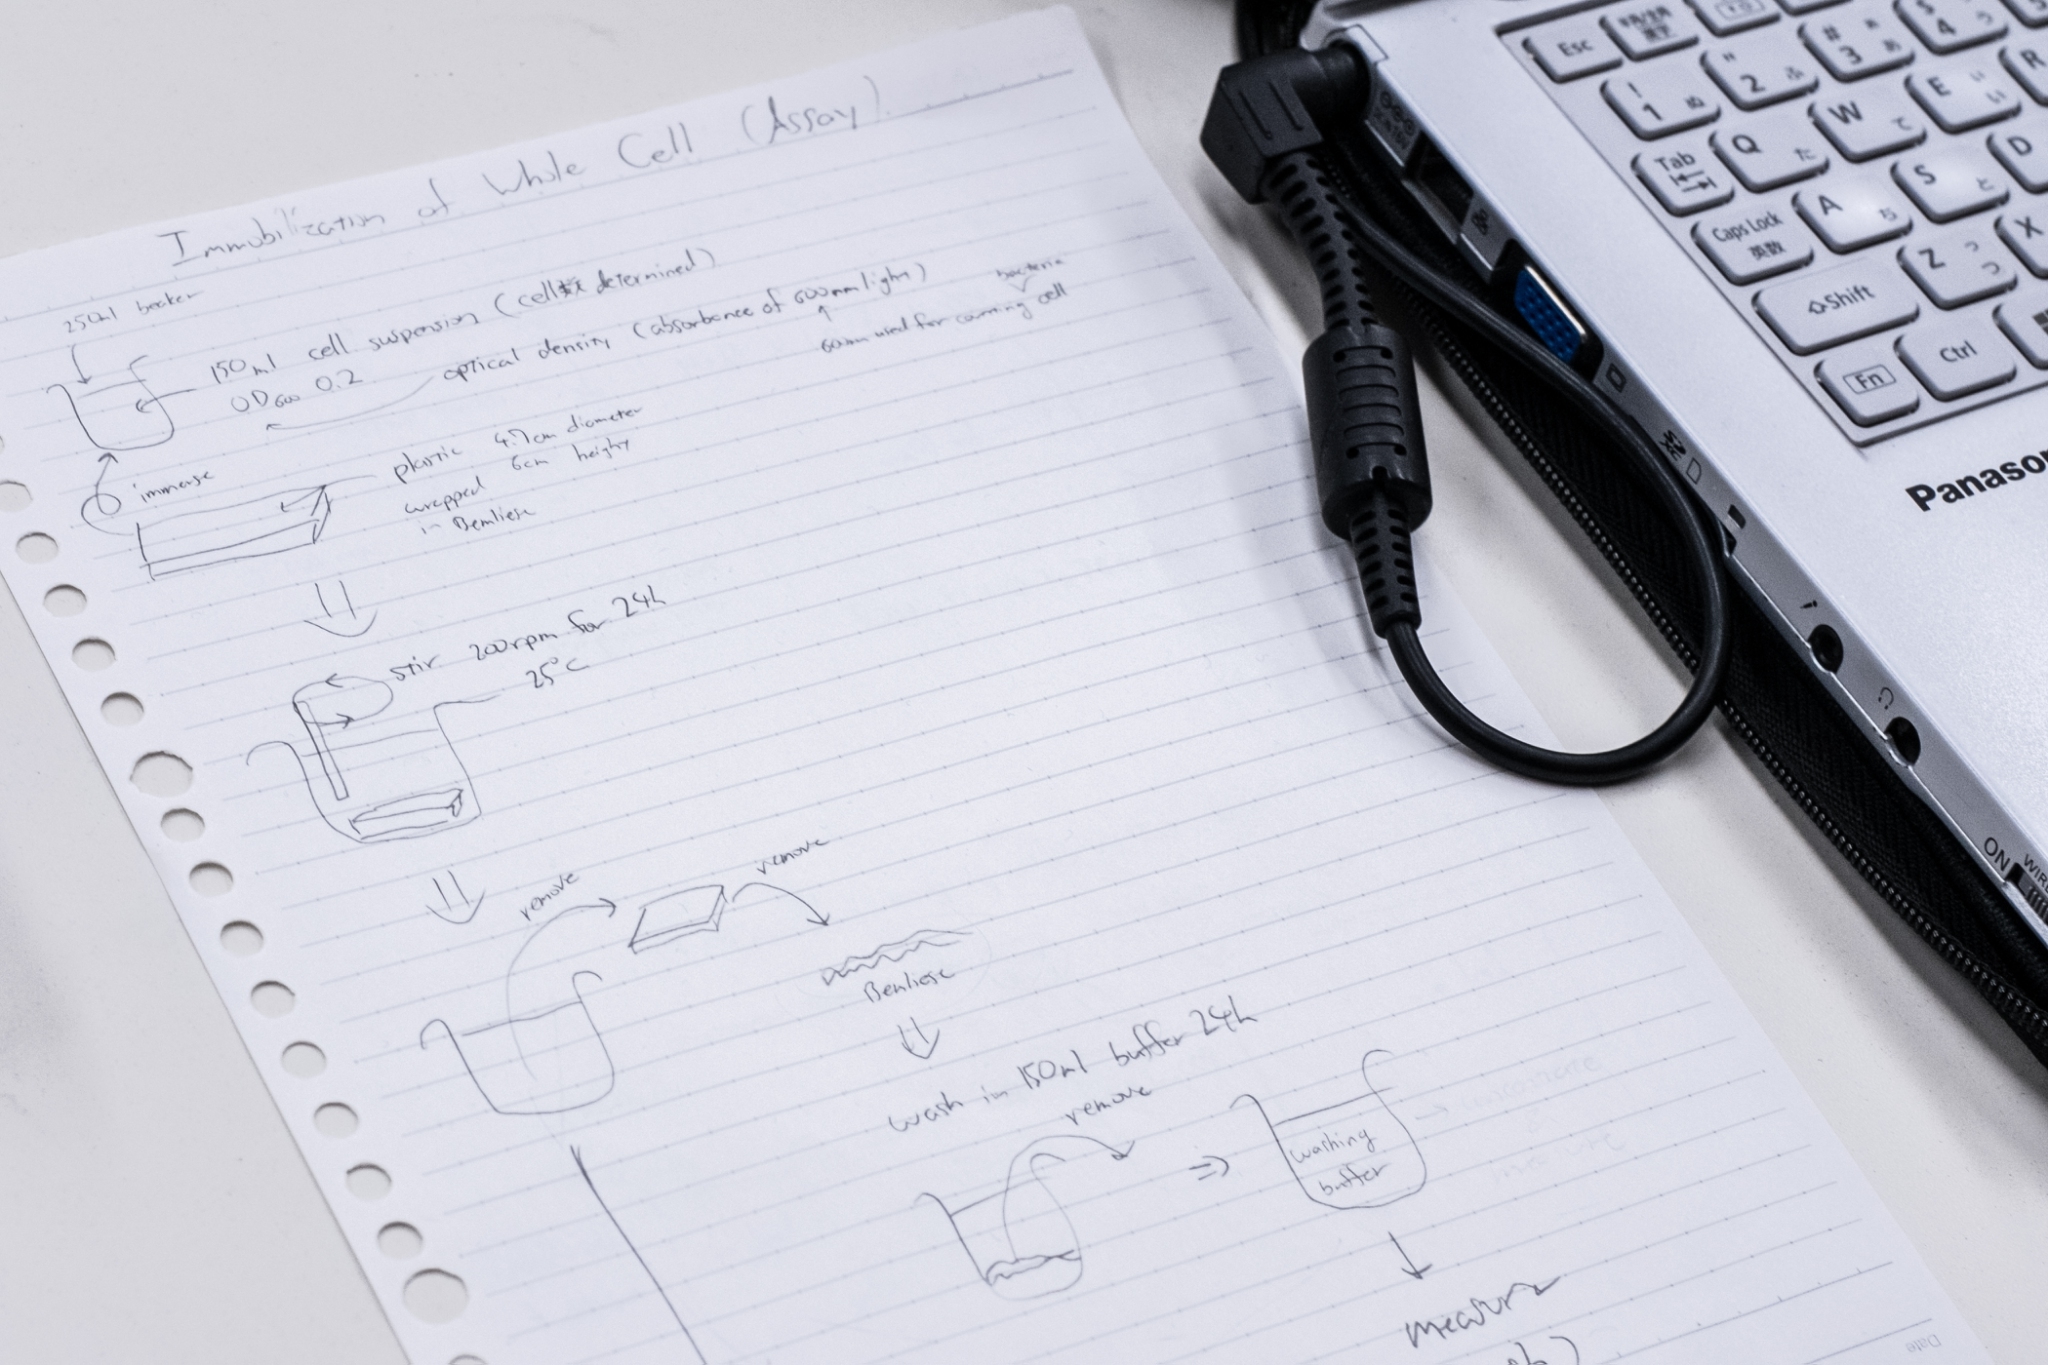 Immobilization of Whole Cell (Assay)
250ml beaker
150ml cell suspension (cell数 determined)
OD600 0.2
optical density (absorbance of 600nm light)
bacteria
600nm used for counting cell
immerse
plastic 4.7cm diameter
wrapped 6cm height
in Bemliese
stir 200rpm for 24h
25°C
remove
remove
Bemliese
wash in 150ml buffer 24h
remove
washing
buffer
Measure
Date
Esc
! 1 ぬ
" 2 ふ
# 3 あ
$ 4
Tab
Q た
W て
E い
R
Caps Lock
英数
A ち
S と
D
Shift
Z つ
X
Fn
Ctrl
Panaso
ON